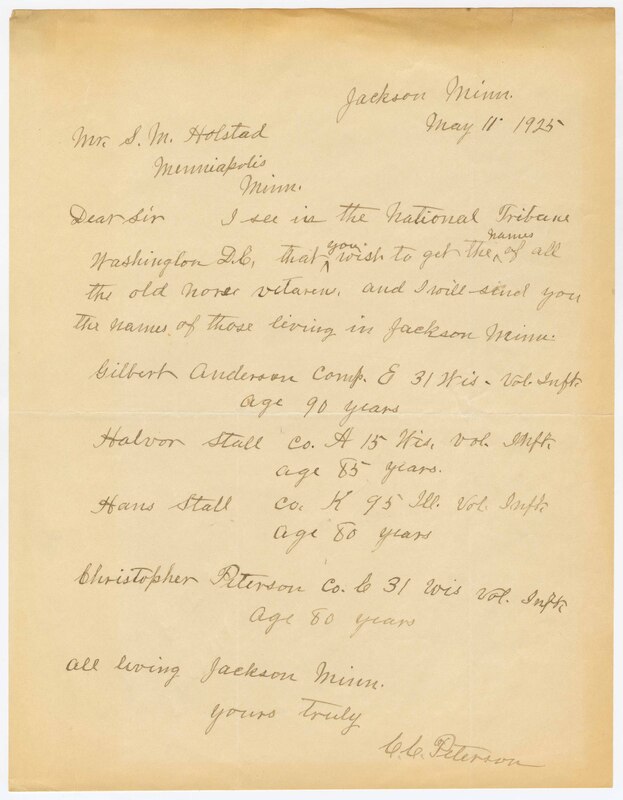 Jackson Minn.
May 11 1925
Mr. S. M. Holstad
Menniapolis
Minn.
Dear Sir I see in the National Tribune
Washington D.C, that you wish to get the names of all
the old norse vetaren. and I will send you
the names of those living in Jackson Minn.
Gilbert Anderson Comp. E 31 Wis. Vol. Inft.
age 90 years
Halvor Stall Co. A 15 Wis. Vol. Inft.
age 85 years.
Hans Stall Co. K 95 Ill. Vol. Inft.
age 80 years
Christopher Peterson Co. C 31 Wis Vol. Inft.
age 80 years
all living Jackson Minn.
yours truly
C.C. Peterson